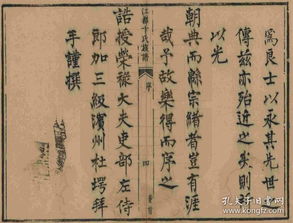 為良士以承其先世
傳茲亦殆近之矣則
以光
朝典而綿宗緒者豈有涯
江都卞氏族譜
序
四
哉予故樂得而序之
誥授榮祿大夫吏部左侍
郎加三級濱州杜堮拜
手謹撰
孔夫子旧书网